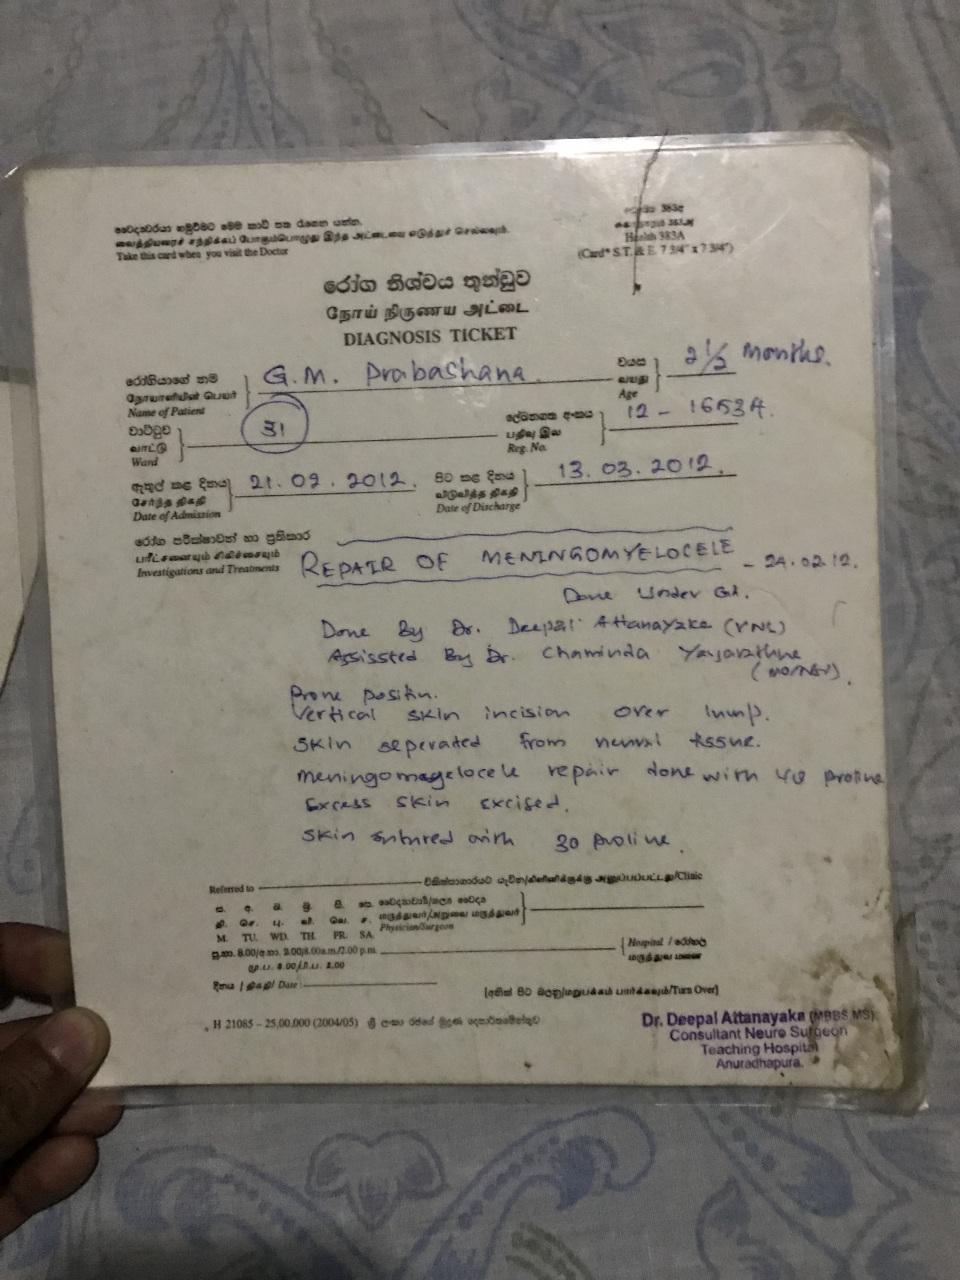 වෛද්‍යවරයා හමුවීමට මෙම කාඩ් පත රැගෙන යන්න.
வைத்தியரைச் சந்திக்கப் போகும்பொழுது இந்த அட்டையை எடுத்துச் செல்லவும்.
Take this card when you visit the Doctor
383අ
Health 383A
(Card* S.T. & E. 7 3/4" x 7 3/4")
රෝග නිශ්චය තුන්ඩුව
நோய் நிருணய அட்டை
DIAGNOSIS TICKET
රෝගියාගේ නම
நோயாளியின் பெயர்
Name of Patient
G.M. Prabashana
වයස
வயது
Age
2 1/2 Months.
වාට්ටුව
வாட்டு
Ward
31
ලේඛනගත අංකය
பதிவு இல
Reg. No.
12 - 16534.
ඇතුල් කළ දිනය
சேர்ந்த திகதி
Date of Admission
21.02.2012.
පිට කළ දිනය
விடுவித்த திகதி
Date of Discharge
13.03.2012.
රෝග පරීක්ෂාවන් හා ප්‍රතිකාර
பரீட்சனையும் சிகிச்சையும்
Investigations and Treatments
REPAIR OF MENINGOMYELOCELE - 24.02.12.
Done Under GA.
Done By Dr. Deepal Attanayake
Assissted By Dr. Chaminda
Prone positn.
Vertical skin incision over lump.
Skin seperated from neural tissue.
Meningomyelocele repair done with 40 proline
Excess skin excised.
Skin sutured with 30 proline.
Referred to
සායනාගාරයට යැවීන/கிளினிக்குக்கு அனுப்பப்பட்டது/Clinic
ස. අ. බ. බ්‍ර. සි. සෙ.
தி. செ. பு. வி. வெ. ச.
M. TU. WD. TH. FR. SA.
වෛද්‍යවරයා/ශල්‍ය වෛද්‍ය
மருத்துவர்/அறுவை மருத்துவர்
Physician/Surgeon
පූ.භා. 8.00/අ.භා. 2.00/8.00a.m./2.00 p.m.
மு.ப. 8.00/பி.ப. 2.00
Hospital / රෝහල
மருத்துவ மனை
දිනය / திகதி/ Date :
[අනික් පිට බලනු/மறுபக்கம் பார்க்கவும்/Turn Over]
H 21085 – 25,00,000 (2004/05) ශ්‍රී ලංකා රජයේ මුද්‍රණ දෙපාර්තමේන්තුව
Dr. Deepal Attanayaka (MBBS MS)
Consultant Neuro Surgeon
Teaching Hospital
Anuradhapura.